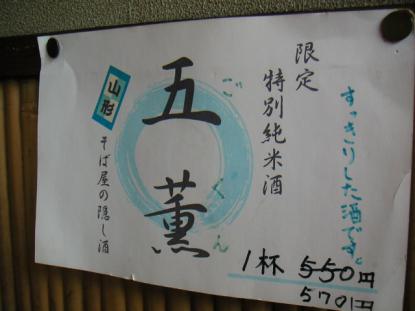 すっきりした酒です。
限定
特別純米酒
五薫
ごくん
山形
そば屋の隠し酒
1杯 550円
570円